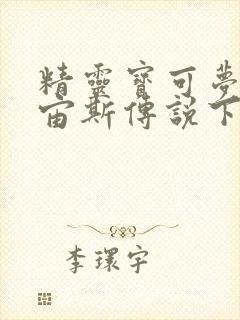 精靈寶可夢
宙斯傳說下
李環宇